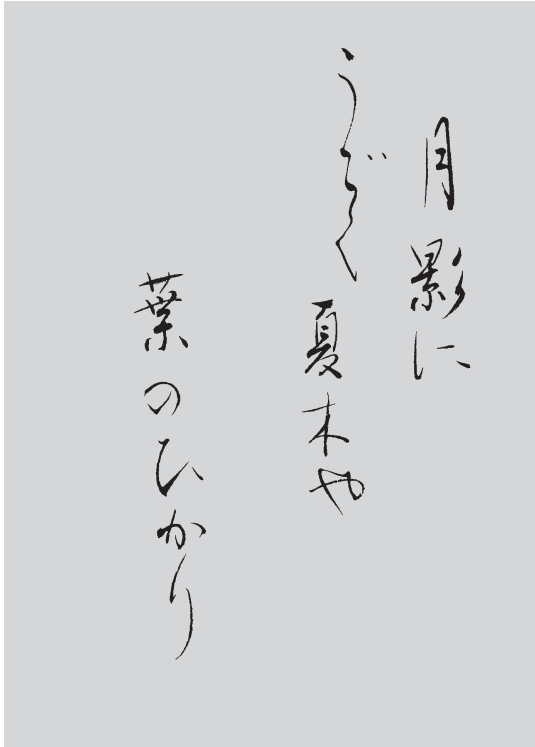 月影に
うごく夏木や
葉のひかり